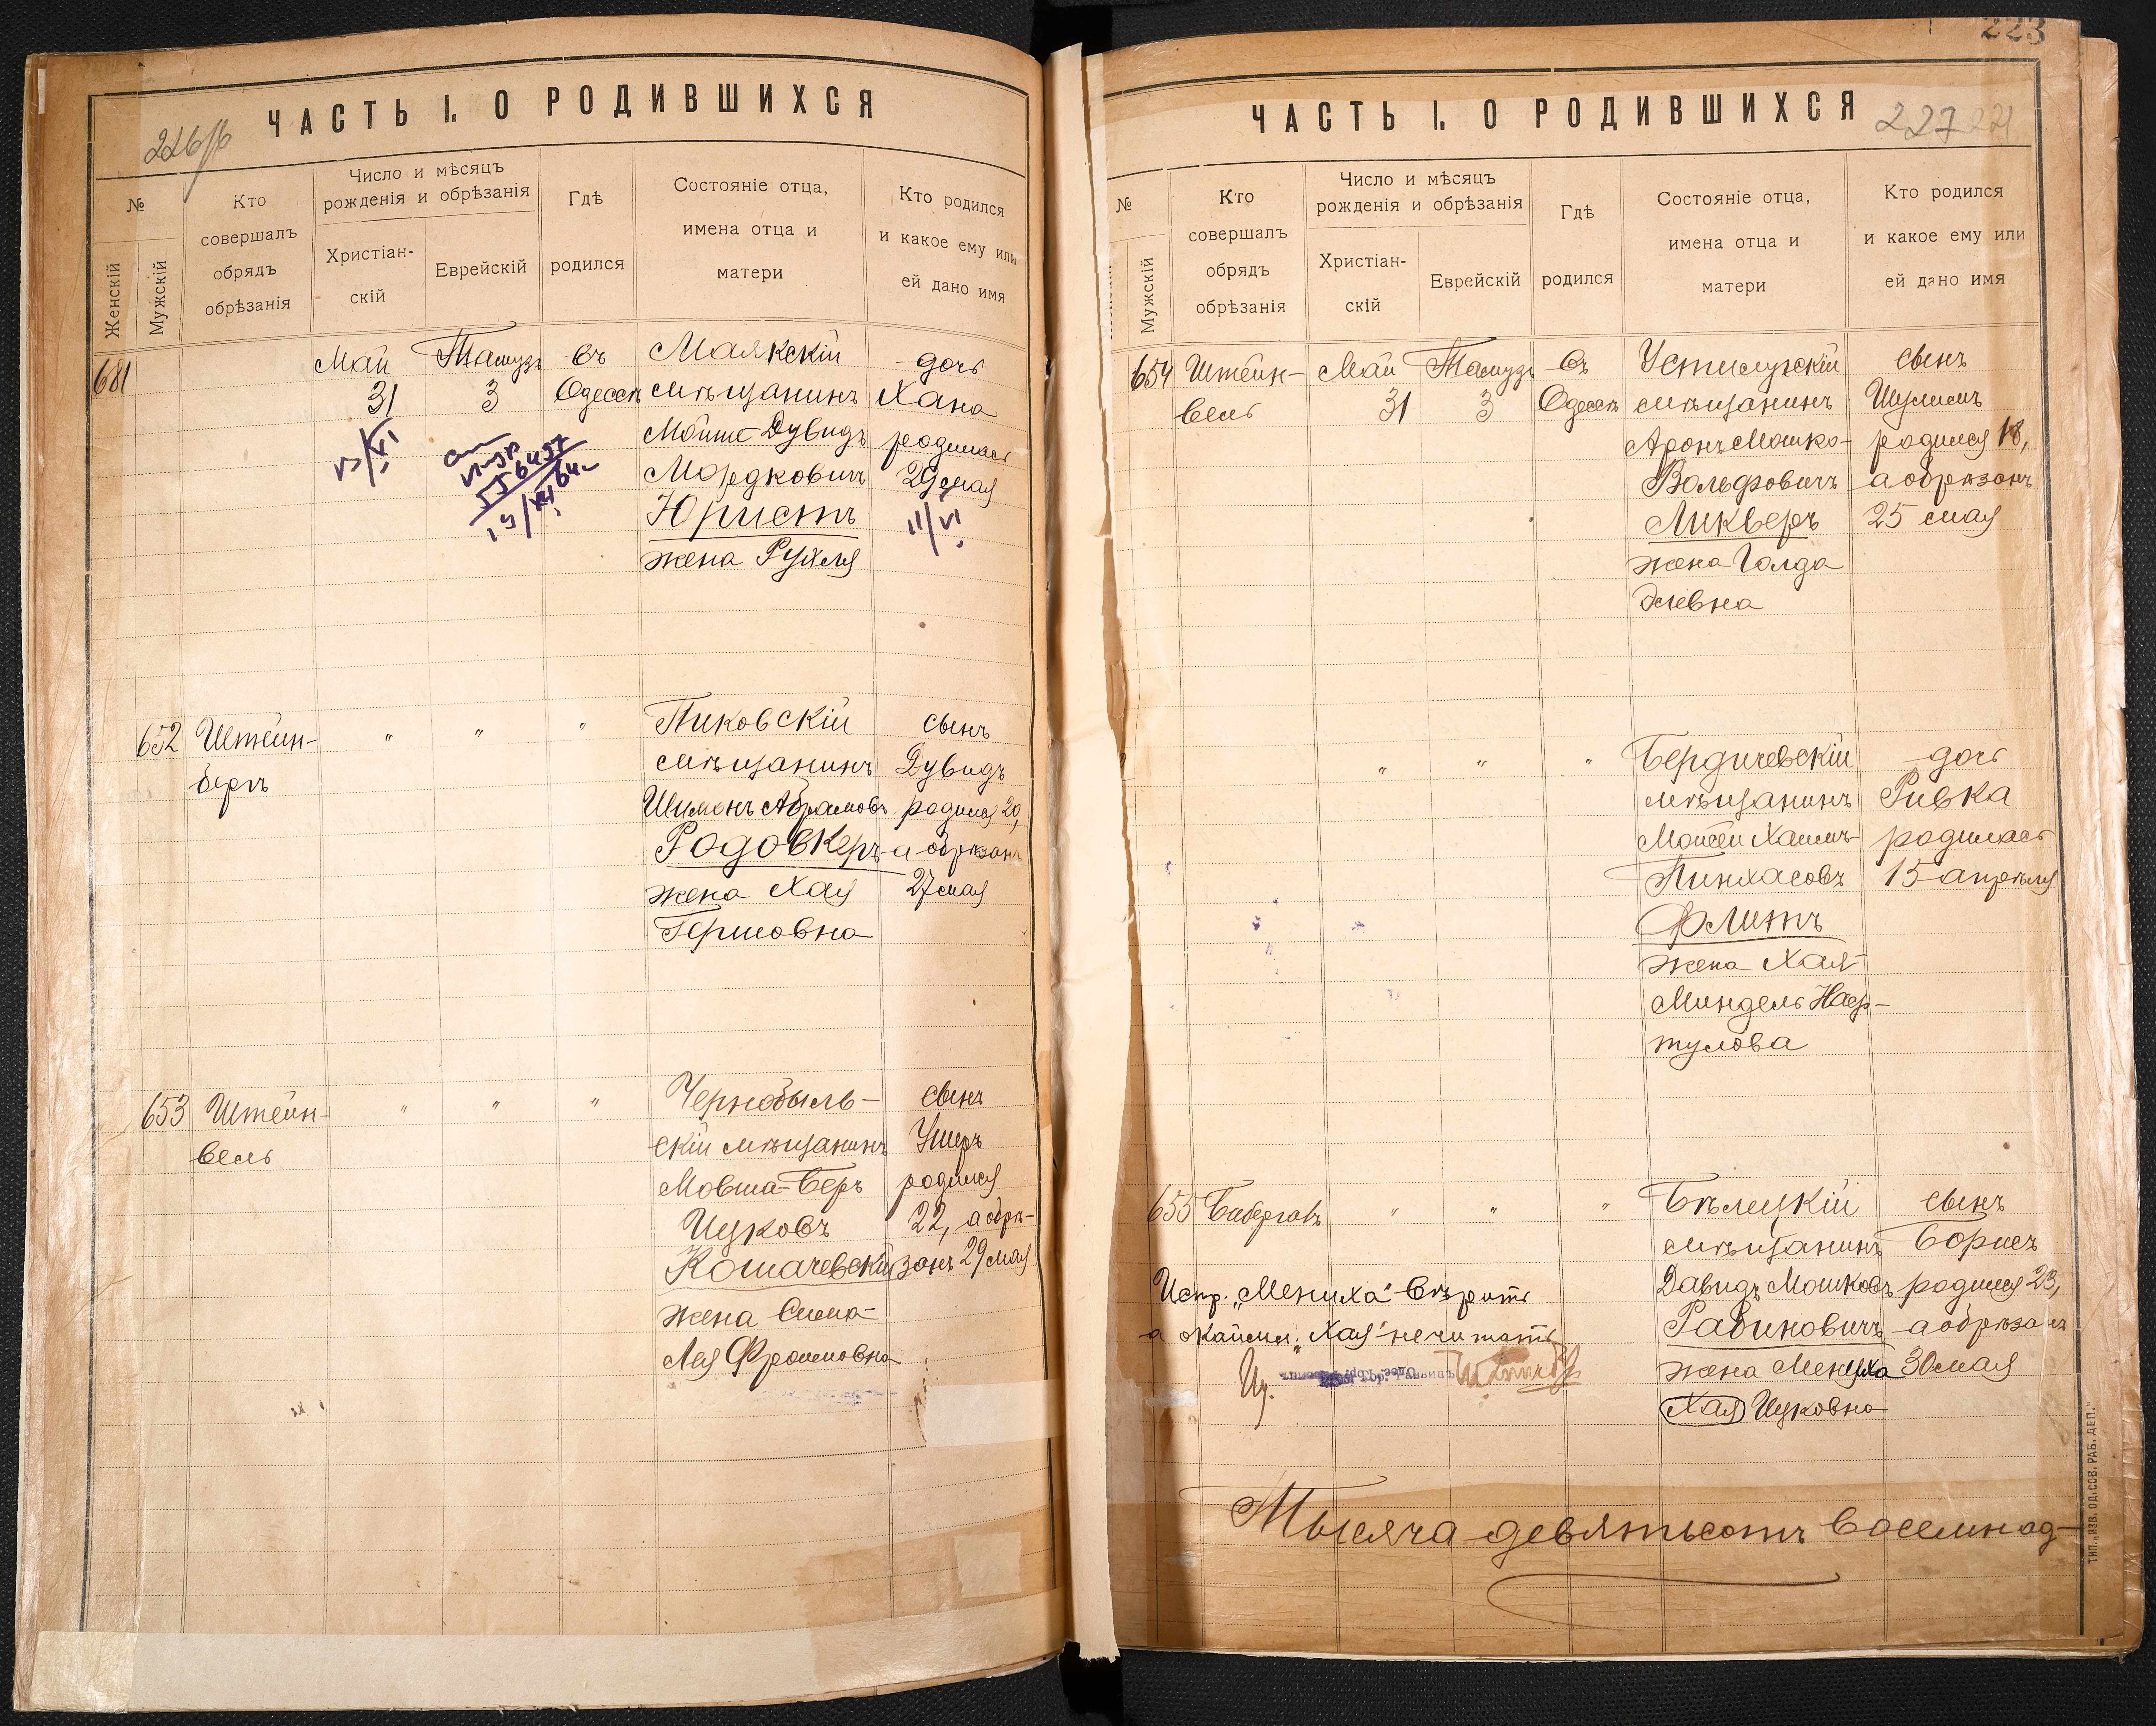 ЧАСТЬ I. О РОДИВШИХСЯ
226об
№
Женскій
Мужскій
Кто совершалъ обрядъ обрѣзанія
Число и мѣсяцъ рожденія и обрѣзанія
Христіан-скій
Еврейскій
Гдѣ родился
Состояніе отца, имена отца и матери
Кто родился и какое ему или ей дано имя
681
Май
31
Тамузъ
3
въ
Одессѣ
Маякскій
мѣщанинъ
Мойше-Дувидъ
Мордковичъ
Юристъ
жена Рухля
дочь
Хана
родилась
29 мая
11/VI
652
Штейн-
бергъ
"
"
"
Пиковскій
мѣщанинъ
Шимонъ Абрамовъ
Родовкеръ
жена Хая
Гершовна
сынъ
Дувидъ
родился 20,
а обрѣзанъ
27 мая
653
Штейн-
вель
"
"
"
Чернобыль-
скій мѣщанинъ
Мовша-Беръ
Ицковъ
Кошачевскій
жена Сима-
Лея Фроимовна
сынъ
Ушеръ
родился
22, а обрѣ-
занъ 29 мая
223
ЧАСТЬ I. О РОДИВШИХСЯ
227
№
Мужскій
Кто совершалъ обрядъ обрѣзанія
Число и мѣсяцъ рожденія и обрѣзанія
Христіан-скій
Еврейскій
Гдѣ родился
Состояніе отца, имена отца и матери
Кто родился и какое ему или ей дано имя
654
Штейн-
вель
Май
31
Тамузъ
3
въ
Одессѣ
Устилугскій
мѣщанинъ
Аронъ Мошко-
Вольфовичъ
Ликверъ
жена Голда
Элевна
сынъ
Шулимъ
родился 18,
а обрѣзанъ
25 мая
"
"
"
Бердичевскій
мѣщанинъ
Мойсей Хаимъ-
Пинхасовъ
Флитъ
жена Хая-
Миндель Наф-
тулова
дочь
Ривка
родилась
15 апрѣля
655
"
"
"
Бѣлецкій
мѣщанинъ
Давидъ Мошковъ
Рабиновичъ
жена Менуха
Хая Ицковна
сынъ
Борисъ
родился 23,
а обрѣзанъ
30 мая
Испр. „Мениха" вѣрить
а окаймл. „Хая" не читать
Тысяча девятьсотъ восемнад-
ТИП. „ИЗВ. ОД. СОВ. РАБ. ДЕП."